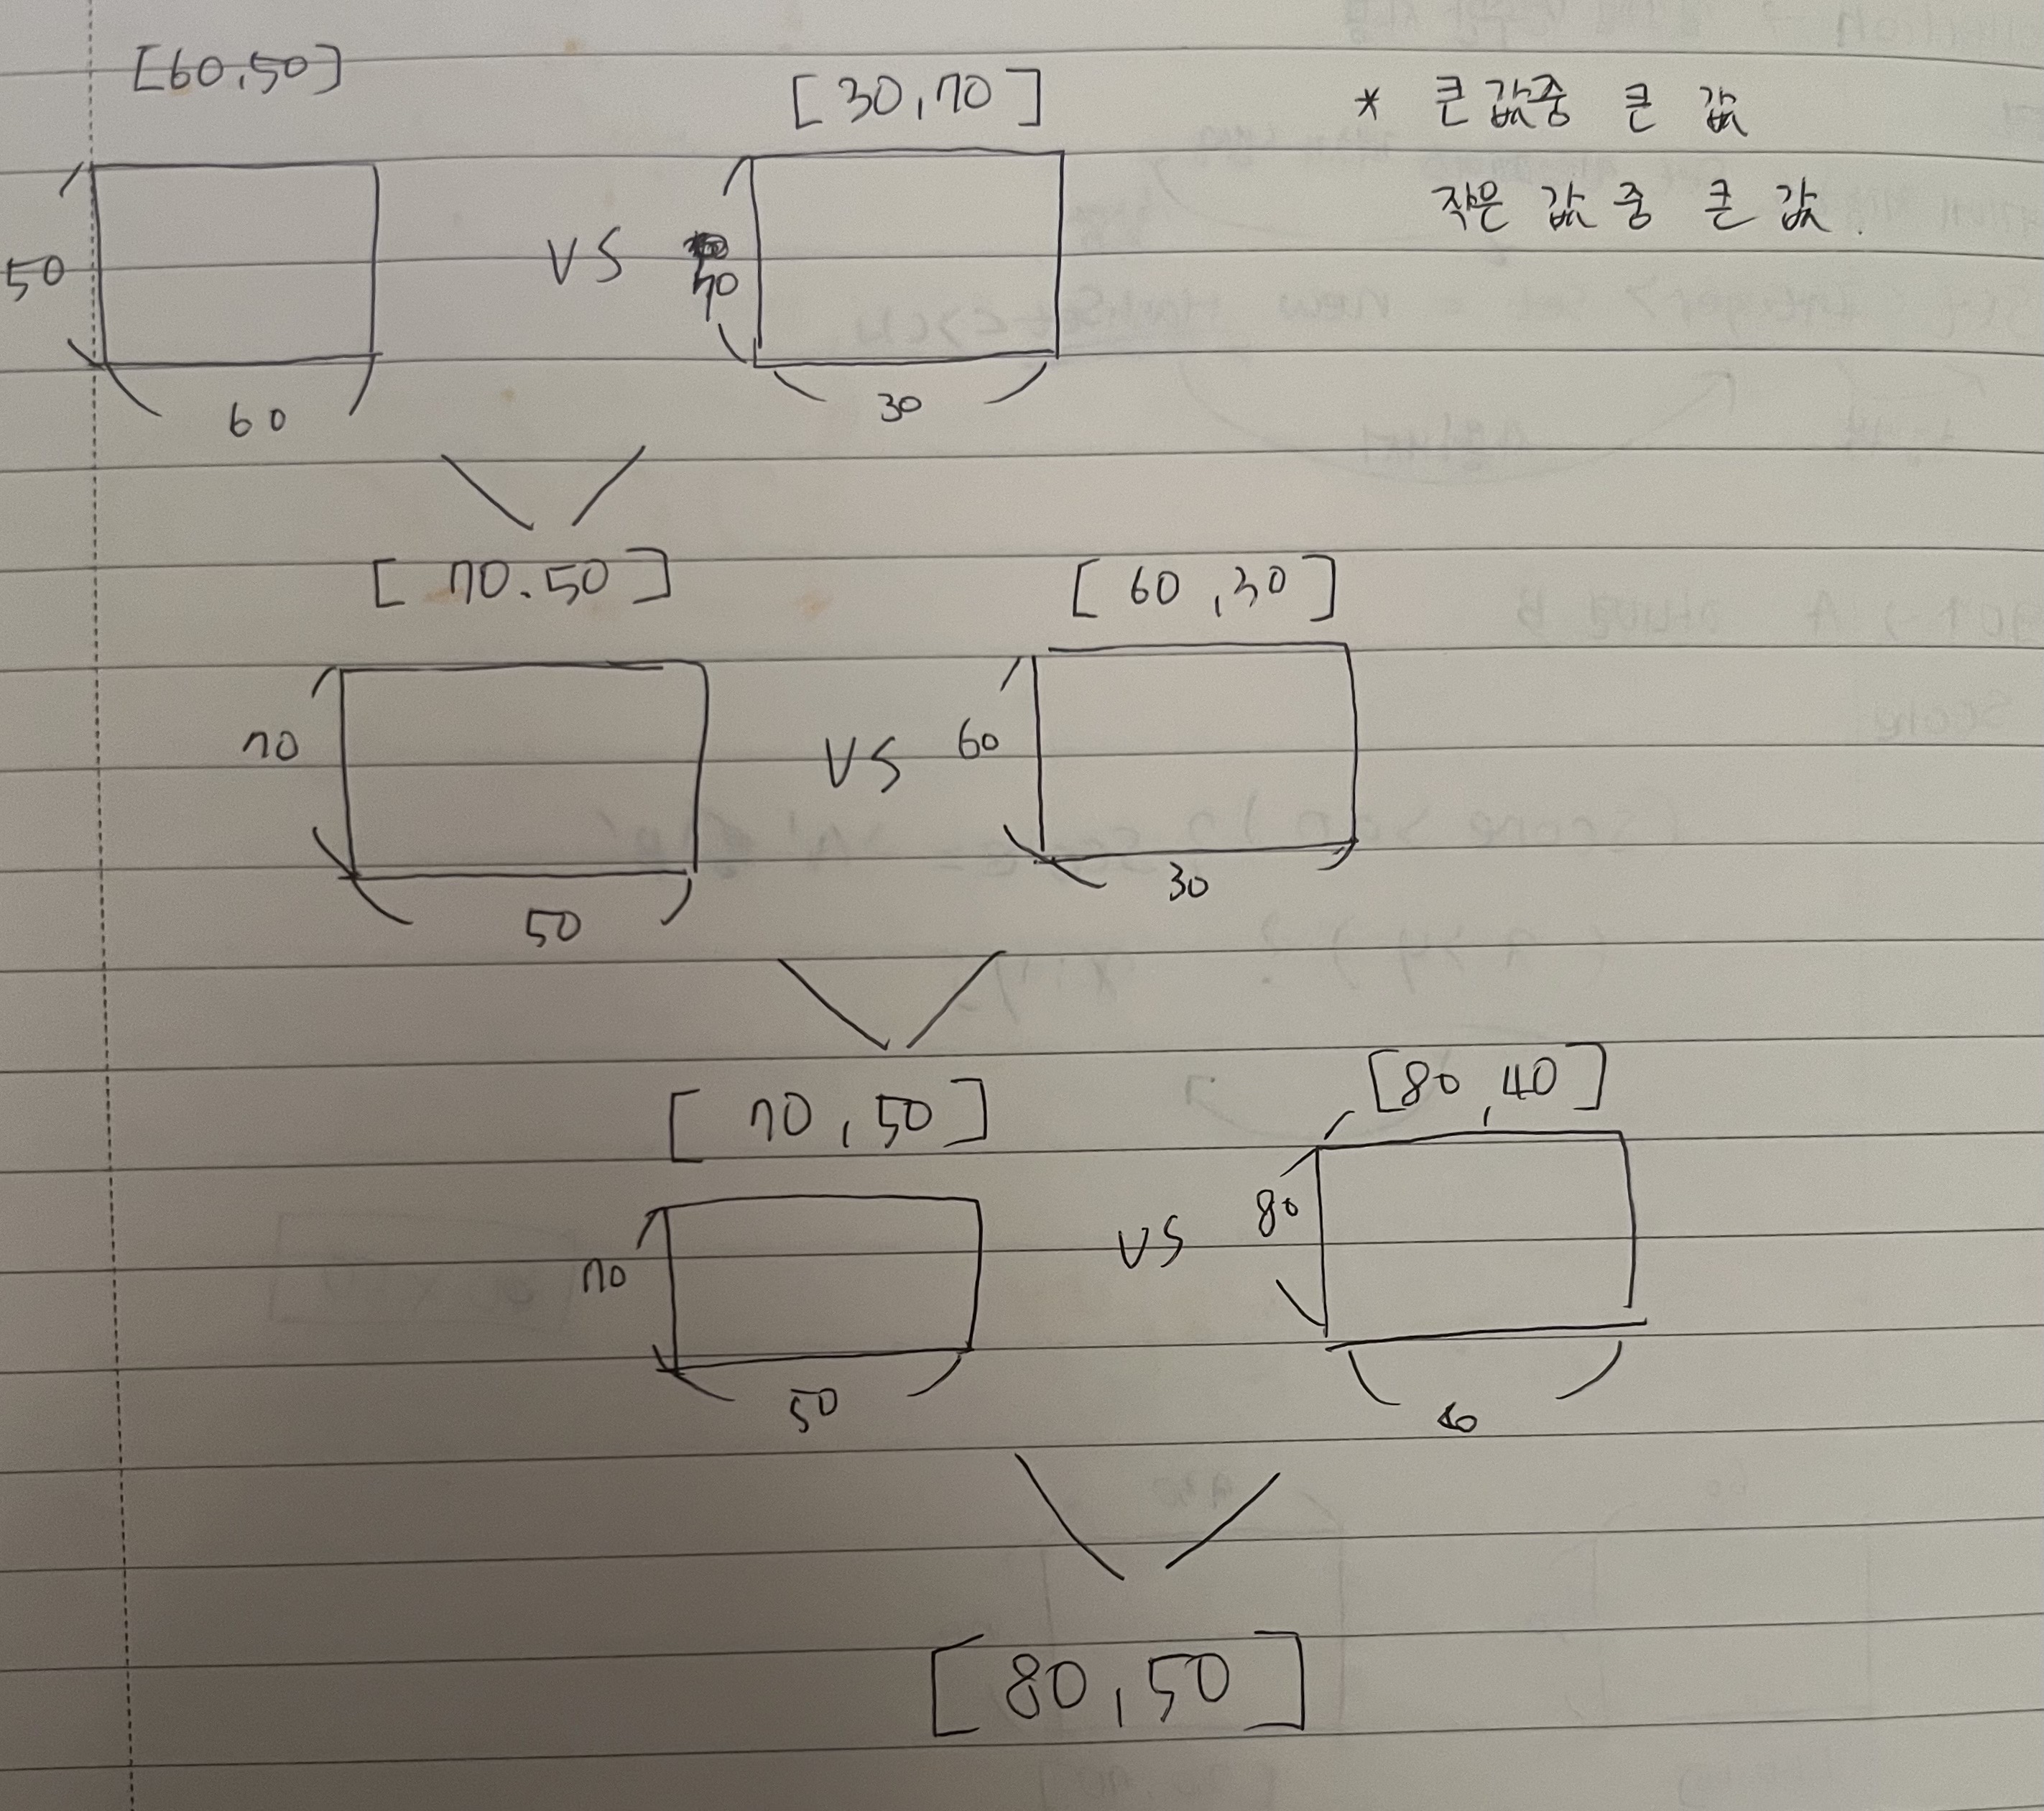 [60,50]
[30,70]
* 큰 값중 큰 값
작은 값 중 큰 값.
50
VS
70
60
30
[70.50]
[60,30]
70
VS
60
50
30
[70,50]
[80,40]
70
VS
80
50
40
[80,50]